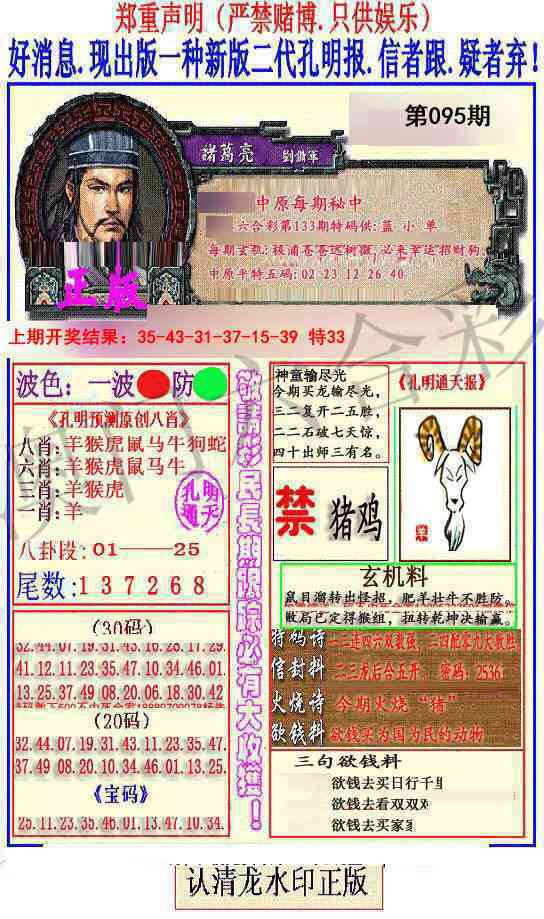 郑重声明（严禁赌博.只供娱乐）
好消息.现出版一种新版二代孔明报.信者跟.疑者弃!
第095期
諸葛亮 劉備軍
中原每期秘中
六合彩第133期特码供: 蓝 小 单
每期玄机: 极浦苍苍远树微, 必来幸运招财狗
中原平特五码: 02 23 12 26 40
正版
上期开奖结果: 35-43-31-37-15-39 特33
波色: 一波 防
《孔明预测原创八肖》
八肖: 羊猴虎鼠马牛狗蛇
六肖: 羊猴虎鼠马牛
三肖: 羊猴虎
一肖: 羊
孔明通天
八卦段: 01——25
尾数: 1 3 7 2 6 8
(30码)
32.44.07.19.31.43.16.28.17.29.
41.12.11.23.35.47.10.34.46.01.
13.25.37.49.08.20.06.18.30.42
(20码)
32.44.07.19.31.43.11.23.35.47.
37.49.08.20.10.34.46.01.13.25.
《宝码》
25.11.23.35.46.01.13.47.10.34.
敬請彩民長期跟踪必有大收獲!
神童输尽光
今期买龙输尽光,
三二复开二五胜,
二二石破七天惊,
四十出师三有名。
禁 猪鸡
《孔明通天报》
玄机料
鼠目溜转出怪招, 肥羊壮牛不胜防,
败局已定得猴组, 扭转乾坤决输赢。
特码诗 一三连四六双数强, 二四配零九天数胜
信封料 二三龙后合五开. 密码: 2536.
火烧诗 今期火烧“猪”
欲钱料 欲钱买为国为民的动物
三句欲钱料
欲钱去买日行千里
欲钱去看双双对
欲钱去买家
认清龙水印正版